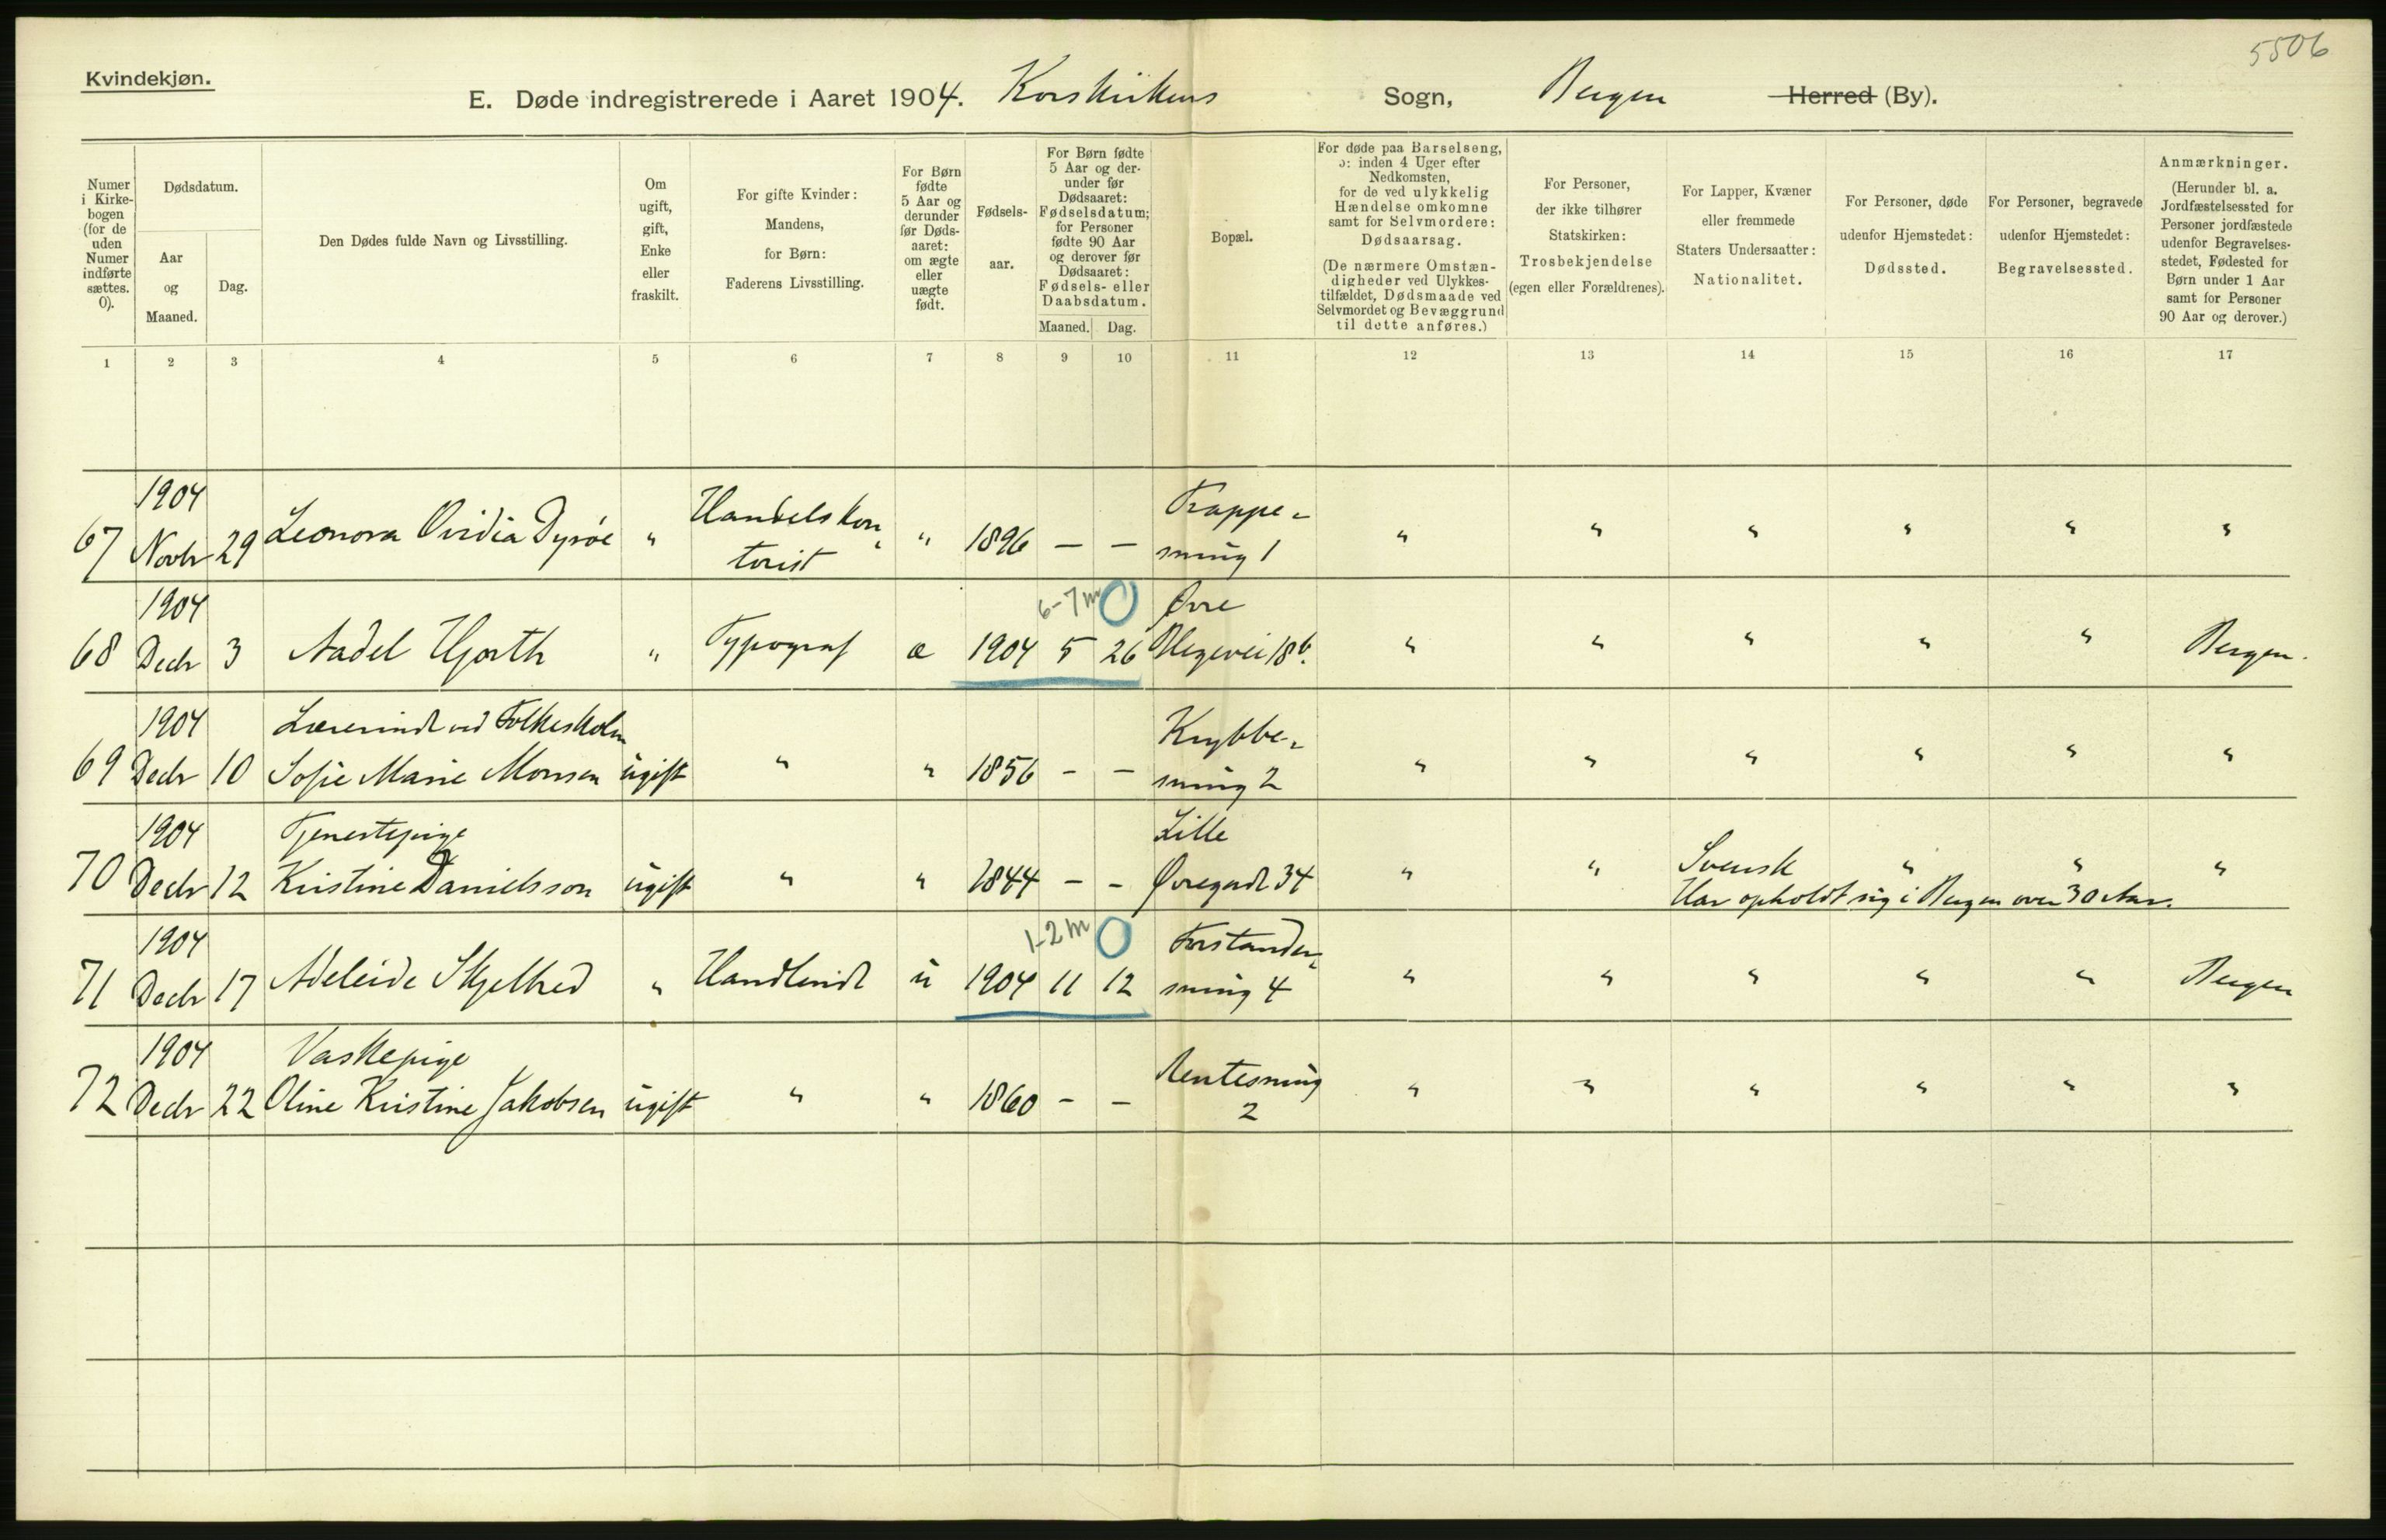 5506
Kvindekjøn.
E. Døde indregistrerede i Aaret 1904. Korskirkens Sogn, Bergen Herred (By).
Numer i Kirke-bogen (for de uden Numer indførte sættes. 0).
Dødsdatum.
Aar og Maaned.
Dag.
Den Dødes fulde Navn og Livsstilling.
Om ugift, gift, Enke eller fraskilt.
For gifte Kvinder: Mandens, for Børn: Faderens Livsstilling.
For Børn fødte 5 Aar og derunder før Døds-aaret: om ægte eller uægte født.
Fødsels-aar.
For Børn fødte 5 Aar og der-under før Dødsaaret: Fødselsdatum; for Personer fødte 90 Aar og derover før Dødsaaret: Fødsels- eller Daabsdatum.
Maaned. Dag.
Bopæl.
For døde paa Barselseng, ɔ: inden 4 Uger efter Nedkomsten, for de ved ulykkelig Hændelse omkomne samt for Selvmordere: Dødsaarsag.
(De nærmere Omstæn-digheder ved Ulykkes-tilfældet, Dødsmaade ved Selvmordet og Bevæggrund til dette anføres.)
For Personer, der ikke tilhører Statskirken: Trosbekjendelse (egen eller Forældrenes).
For Lapper, Kvæner eller fremmede Staters Undersaatter: Nationalitet.
For Personer, døde udenfor Hjemstedet: Dødssted.
For Personer, begravede udenfor Hjemstedet: Begravelsessted.
Anmærkninger.
(Herunder bl. a. Jordfæstelsessted for Personer jordfæstede udenfor Begravelses-stedet, Fødested for Børn under 1 Aar samt for Personer 90 Aar og derover.)
1 2 3 4 5 6 7 8 9 10 11 12 13 14 15 16 17
1904 Handelskon- Trappe-
67 Novbr 29 Leonora Ovidia Dyrøe " torist " 1896 – – smug 1 " " " " " "
1904 6-7 m 0 Øvre
68 Decbr 3 Aadel Hjorth " Typograf æ 1904 5 26 Blegevei 18b. " " " " " Bergen.
1904 Lærerinde ved Folkeskolen Krybbe-
69 Decbr 10 Sofie Marie Monsen ugift " " 1856 – – smug 2 " " " " " "
1904 Tjenestepige Lille
70 Decbr 12 Kristine Danielsson ugift " " 1844 – – Øvregade 34 " " Svensk " " "
Har opholdt sig i Bergen over 30 Aar.
1904 1-2 m 0 Forstander-
71 Decbr 17 Adeleide Skjelbred " Handlende u 1904 11 12 smug 4 " " " " " Bergen
1904 Vaskepige Rentesmug
72 Decbr 22 Oline Kristine Jakobsen ugift " " 1860 – – 2 " " " " " "